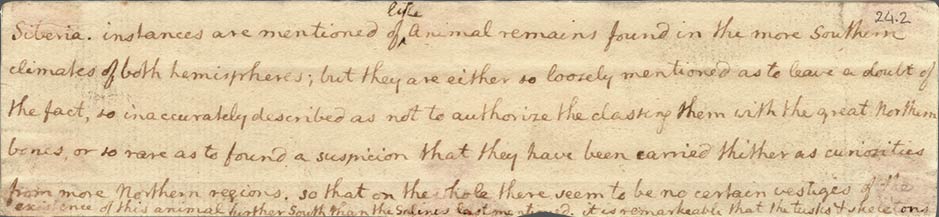 like 24.2
Siberia. instances are mentioned of ‸ animal remains found in the more Southern
climates of both hemispheres; but they are either so loosely mentioned as to leave a doubt of
the fact, so inaccurately described as not to authorize the classing them with the great Northern
bones, or so rare as to found a suspicion that they have been carried thither as curiosities
from more Northern regions. so that on the whole there seem to be no certain vestiges of the
existence of this animal further South than the Salines last mentioned. it is remarkeable that the tusks & skeletons